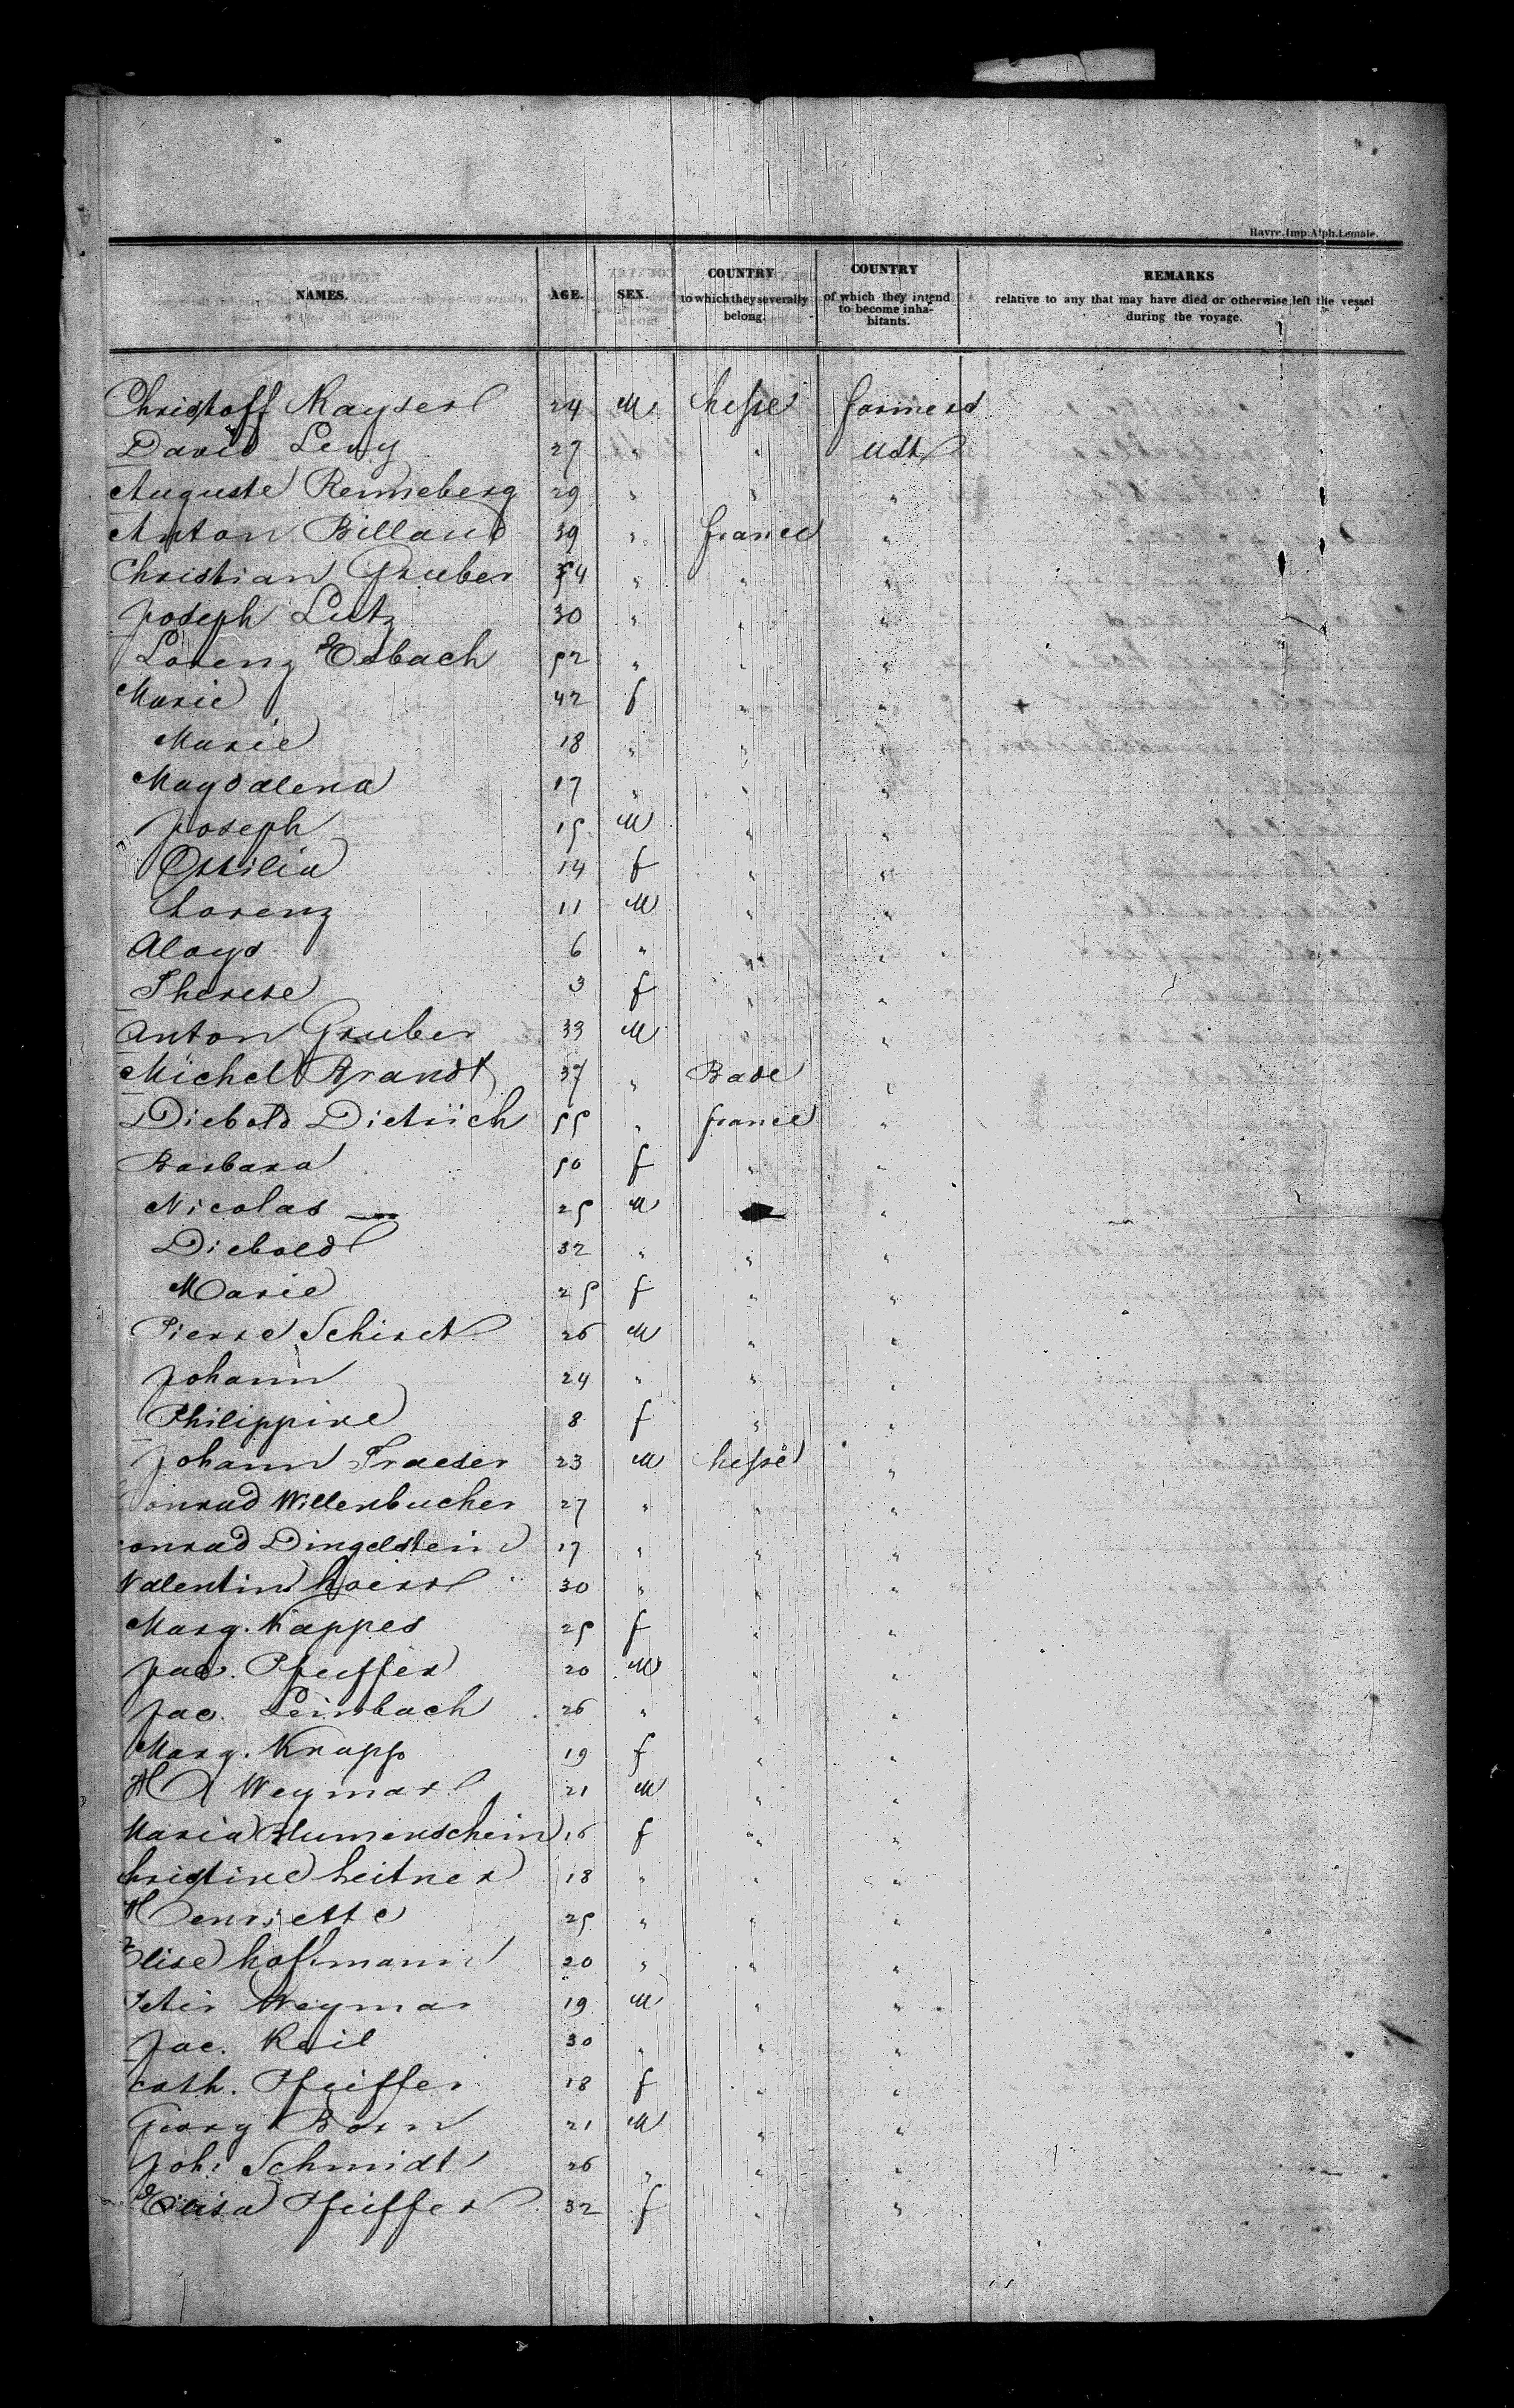 Havre. Imp. Alph. Lemale.
NAMES. AGE. SEX. COUNTRY to which they severally belong. COUNTRY of which they intend to become inhabitants. REMARKS relative to any that may have died or otherwise left the vessel during the voyage.
Christoff Kayser 24 M hesse farmers
David Levy 27 " " USt
Auguste Renneberg 29 " " "
Anton Billaud 39 " france "
Christian Gruber 54 " " "
Joseph Lutz 30 " " "
Lorenz Erbach 52 " " "
Marie 42 f " " +
Marie 18 " " "
Magdalena 17 " " "
Joseph 15 M " "
Ottilia 14 f " "
Lorenz 11 M " "
Aloys 6 " " "
Therese 3 f " "
Anton Gruber 33 M " "
Michel Brandt 37 " Bade "
Diebold Dietrich 55 " france "
Barbara 50 f " "
Nicolas 25 M "
Diebold 32 " " "
Marie 25 f " "
Pierre Schirch 26 M " "
Johann 24 " " "
Philippine 8 f " "
Johann Traeser 23 M hesse "
Conrad Willenbucher 27 " " "
onrad Dingelstein 17 " " "
Valentin 30 " " "
Marg. Kappes 25 f " "
Jac. Pfeiffer 20 M " "
Jac. Leinbach 26 " " "
Marg. Knapp 19 f " "
H Weymar 21 M " "
Maria Blumenschein 16 f " "
hristine Leitner 18 " " "
Henriette 25 " " "
Elise hofmann 20 " " "
Peter Weymar 19 M " "
Jac. Keil 30 " " "
Cath. Pfeiffer 18 f " "
Georg Born 21 M " "
Joh. Schmidt 26 " " "
Elisa Pfeiffer 32 f " "